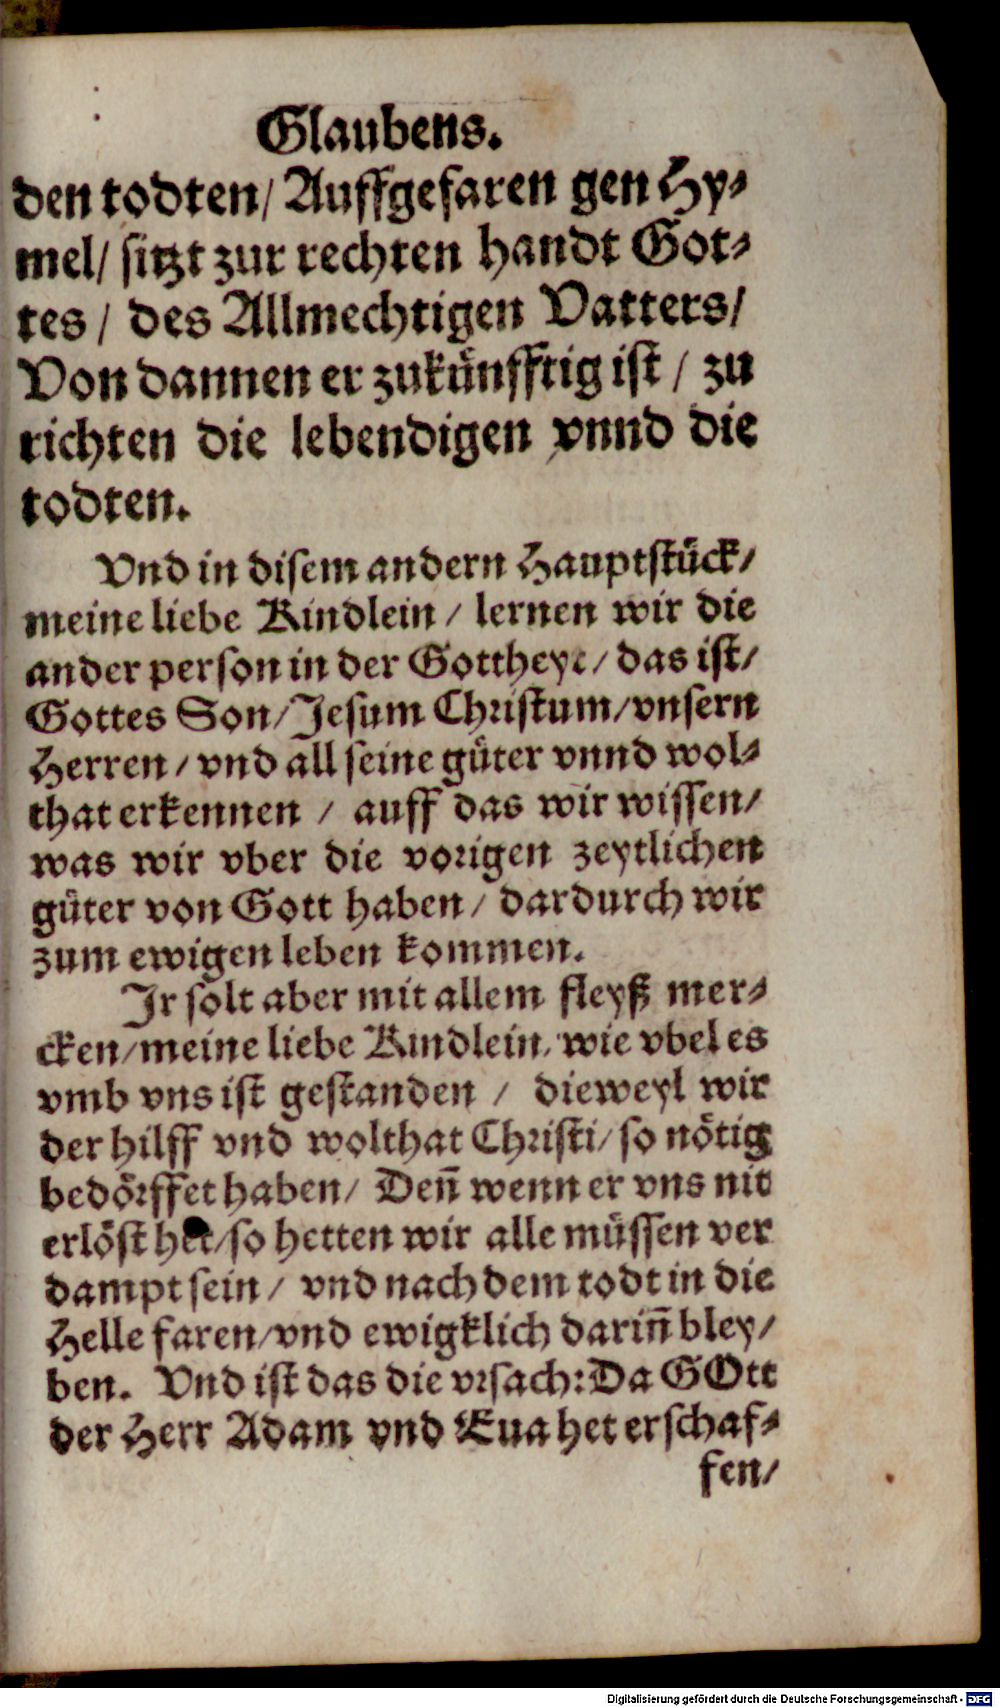 Glaubens.
den todten/ Auffgefaren gen Hy⸗
mel/ sitzt zur rechten handt Got⸗
tes / des Allmechtigen Vatters/
Von dannen er zukünfftig ist / zu
richten die lebendigen vnnd die
todten.
Vnd in disem andern Hauptstück/
meine liebe Kindlein / lernen wir die
ander person in der Gottheyt/ das ist/
Gottes Son/ Jesum Christum/ vnsern
Herren / vnd all seine güter vnnd wol⸗
that erkennen / auff das wir wissen/
was wir vber die vorigen zeytlichen
güter von Gott haben/ dardurch wir
zum ewigen leben kommen.
Jr solt aber mit allem fleyß mer⸗
cken/ meine liebe Kindlein, wie vbel es
vmb vns ist gestanden / dieweyl wir
der hilff vnd wolthat Christi/ so nötig
bedörffet haben/ Deñ wenn er vns nit
erlöst het/ so hetten wir alle müssen ver
dampt sein / vnd nach dem todt in die
Helle faren/ vnd ewigklich dariñ bley/
ben. Vnd ist das die vrsach: Da GOtt
der Herr Adam vnd Eua het erschaf⸗
fen/
Digitalisierung gefördert durch die Deutsche Forschungsgemeinschaft - DFG